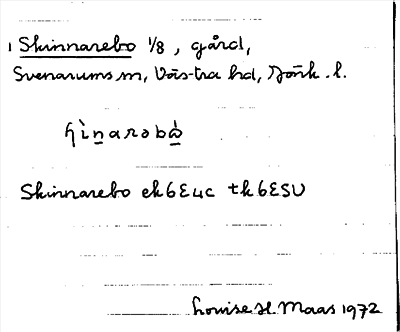 1 Skinnarebo 1/8, gård,
Svenarums sn, Västra hd, Jönk. l.
ɧìn̲arəbå̲̀
Skinnarebo ek 6E4c tk 6E5U
Louise H. Maas 1972